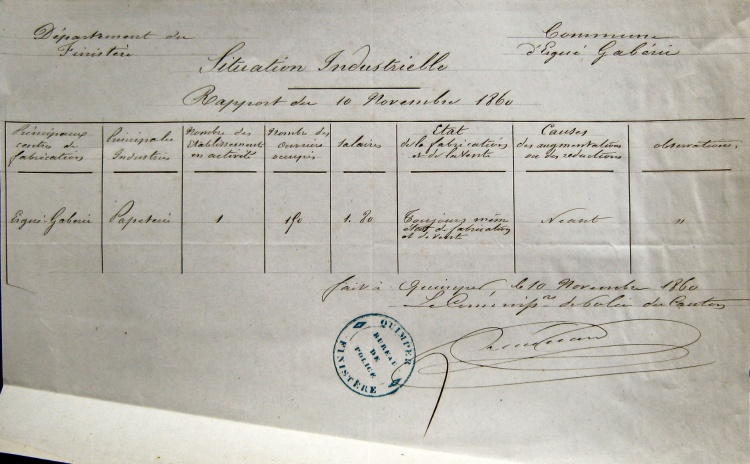 Département du
Finistère
Commune
d'Ergué Gabéric
Situation Industrielle
Rapport du 10 Novembre 1860
Principaux
centres de
fabrications
Principales
Industries
Nombre des
Etablissements
en activité
Nombre des
ouvriers
occupés
Salaires
Etat
de la fabrication
et de la Vente
Causes
des augmentations
ou des réductions
observations.
Ergué-Gabéric
Papeterie
1
150
1. 80
Toujours même
état de fabrication
et de vente
Néant
"
fait à Quimper, le 10 Novembre 1860
Le Commiss.re de Police du Canton
QUIMPER
BUREAU
DE
POLICE
FINISTÈRE